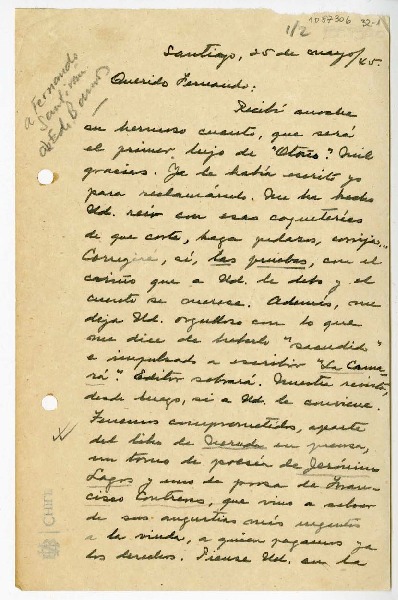 1087306 32-1
1/2
a Fernando
Santiván
de Ed. Barrios
Santiago, 25 de mayo/45.
Querido Fernando:
Recibí anoche
su hermoso cuento, que será
el primer lujo de "Otoño". Mil
gracias. Ya le había escrito yo
para reclamárselo. Me ha hecho
Ud. reír con esas coqueterías
de que corte, haga pedazos, corrija...
Corregiré, sí, las pruebas, con el
cariño que a Ud. le debo y el
cuento se merece. Además, me
deja Ud. orgulloso con lo que
me dice de haberlo "sacudido"
e impulsado a escribir "La Cama-
rá". Editor sobrará. Nuestra revista,
desde luego, si a Ud. le conviene.
Tenemos comprometidos, aparte
del libro de Neruda en prensa,
un tomo de poesía de Jerónimo
Lagos y uno de prosa de Fran-
cisco Contreras, que vino a salvar
de sus angustias más urgentes
a la viuda, a quien pagamos ya
los derechos. Piense Ud. en la
CHILE